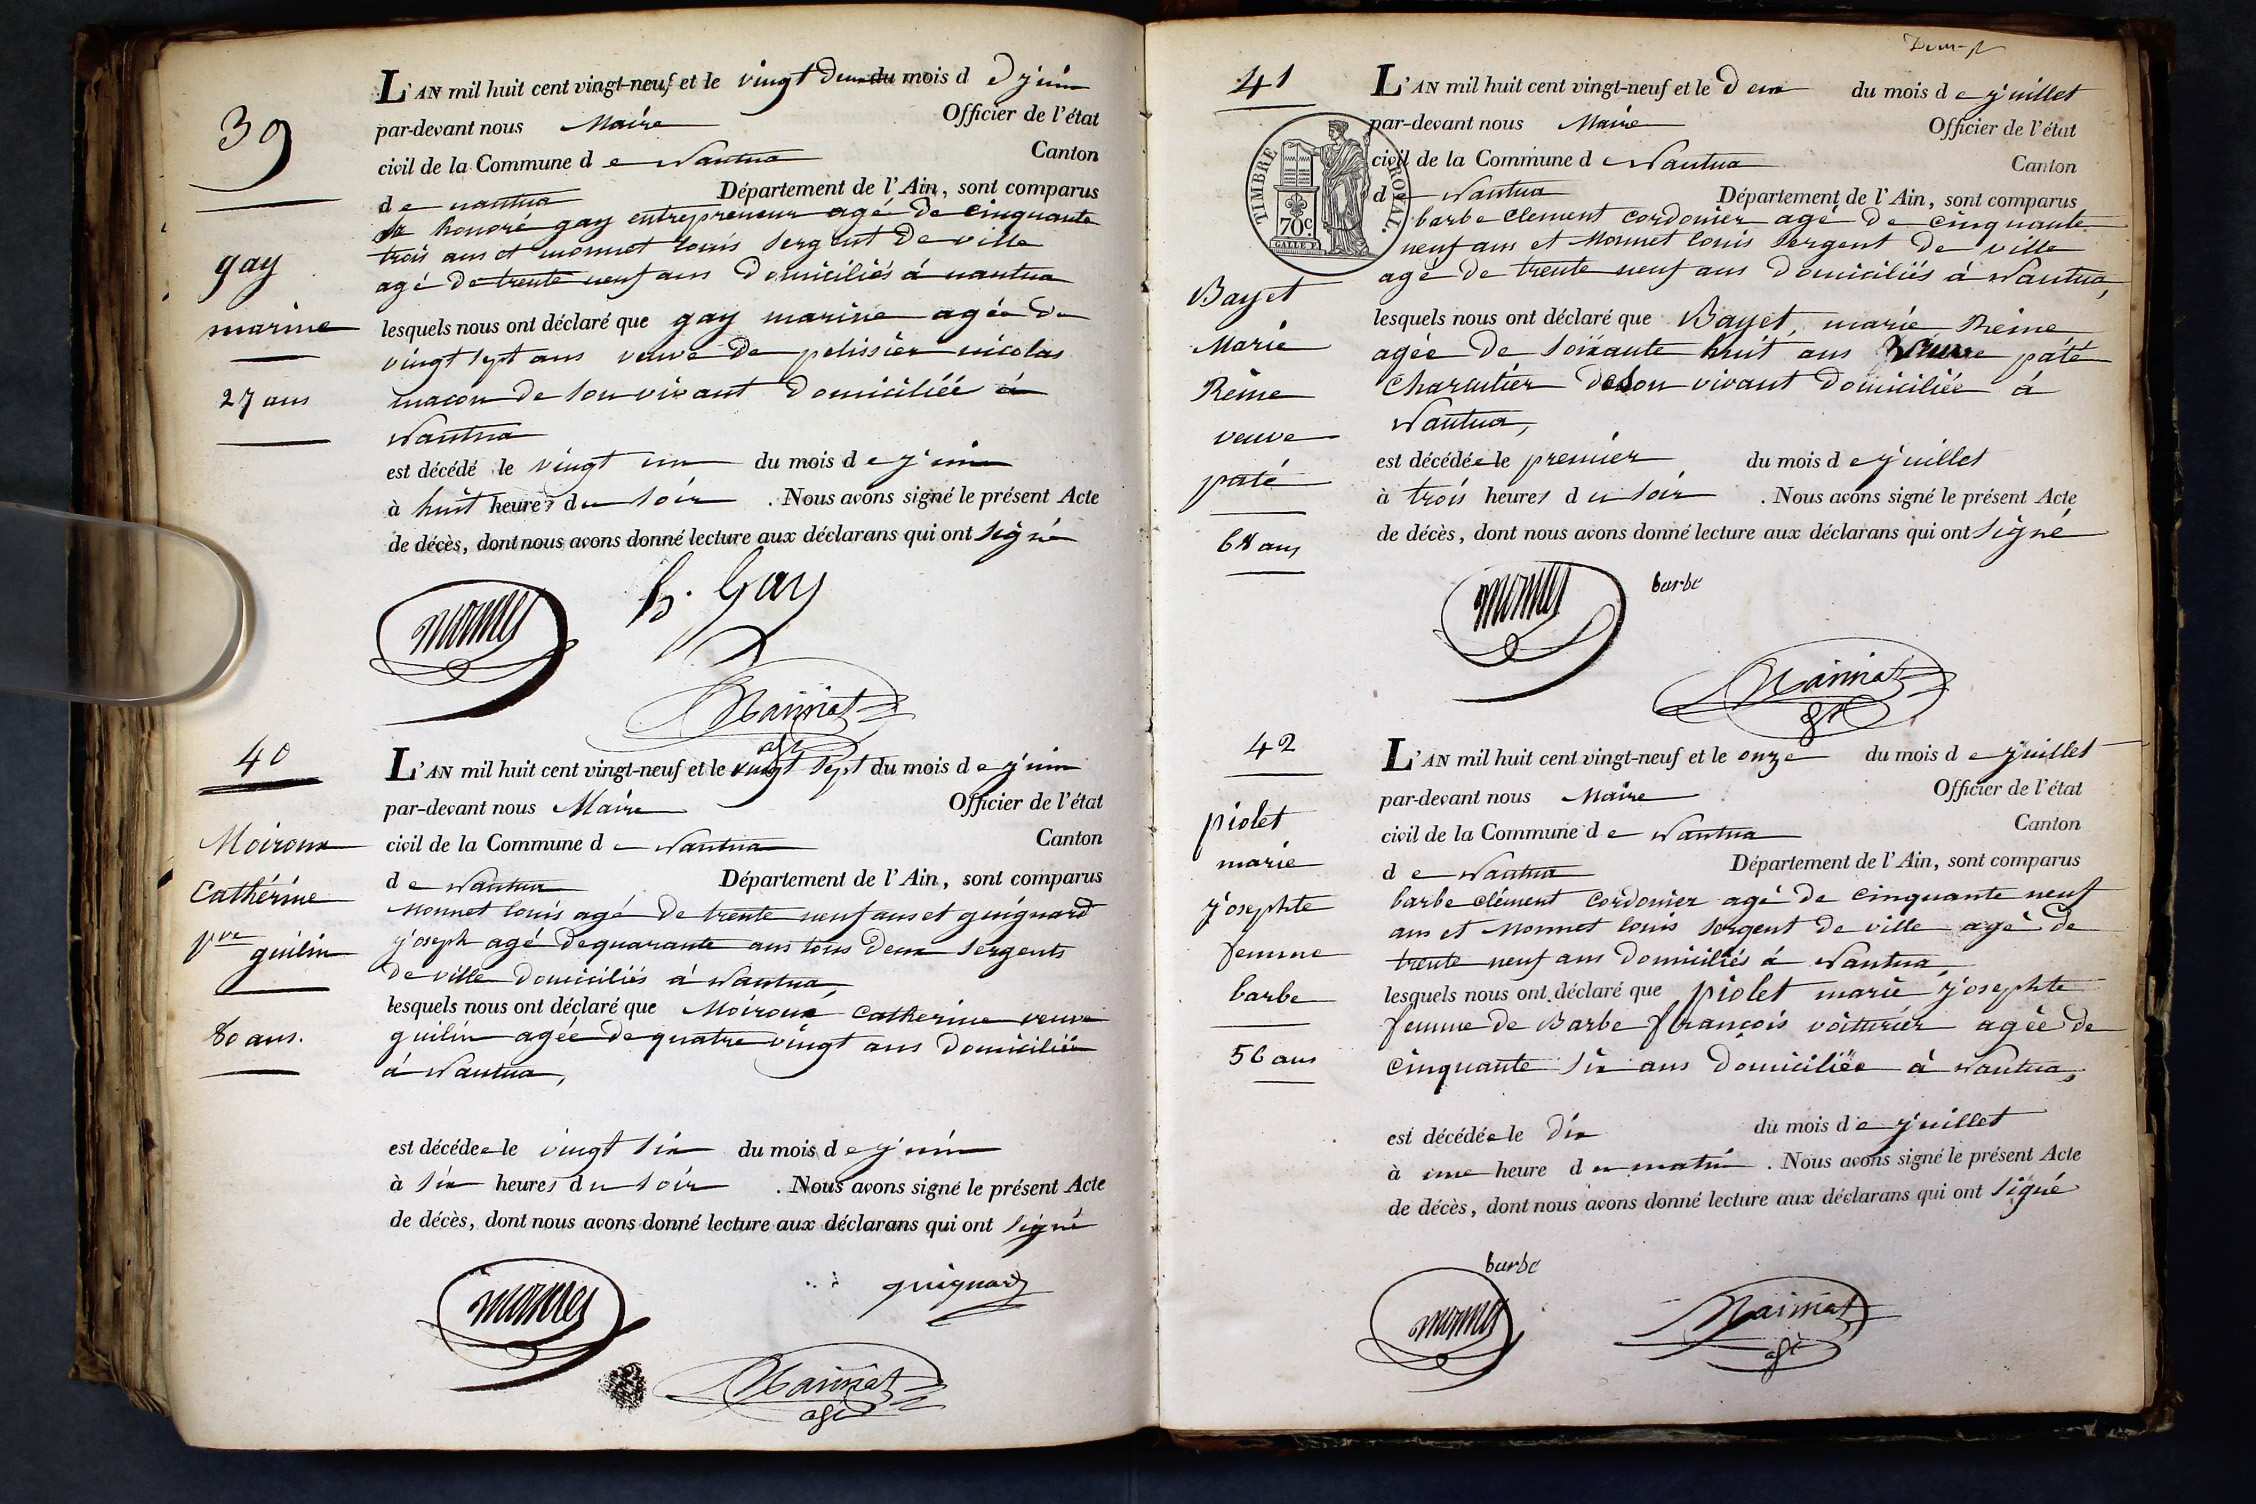 39
gay
marine
27 ans
L'AN mil huit cent vingt-neuf et le vingt deux du mois de juin
par-devant nous Maire Officier de l'état
civil de la Commune de Nantua Canton
de nantua Département de l'Ain, sont comparus
honoré gay entrepreneur agé de cinquante
trois ans et monnet louis sergent de ville
agé de trente neuf ans domiciliés à nantua
lesquels nous ont déclaré que gay marine agée de
vingt sept ans veuve de pelissier nicolas
macon de son vivant domiciliée à
Nantua
est décédé le vingt un du mois de juin
à huit heures du soir . Nous avons signé le présent Acte
de décès, dont nous avons donné lecture aux déclarans qui ont signé
monnet h. Gay
40
Moiroux
Cathérine
vve guilin
80 ans.
L'AN mil huit cent vingt-neuf et le vingt sept du mois de juin
par-devant nous Maire Officier de l'état
civil de la Commune de Nantua Canton
de Nantua Département de l'Ain, sont comparus
Monnet louis agé de trente neuf ans et guignard
joseph agé de quarante ans tous deux sergents
de ville domiciliés à Nantua
lesquels nous ont déclaré que Moiroux Catherine veuve
guilin agée de quatre vingt ans domiciliée
à Nantua,
est décédée le vingt six du mois de juin
à six heures du soir . Nous avons signé le présent Acte
de décès, dont nous avons donné lecture aux déclarans qui ont signé
monnet guignard
41
TIMBRE ROYAL.
70c
Bayet
Marie
Reine
veuve
paté
68 ans
L'AN mil huit cent vingt-neuf et le deux du mois de juillet
par-devant nous Maire Officier de l'état
civil de la Commune de Nantua Canton
de Nantua Département de l'Ain, sont comparus
barbe clement cordonier agé de cinquante
neuf ans et Monnet louis sergent de ville
agé de trente neuf ans domiciliés à Nantua,
lesquels nous ont déclaré que Bayet, marie Reine
agée de soixante huit ans veuve pâté
Charcutier de son vivant domiciliée à
Nantua,
est décédée le premier du mois de juillet
à trois heures du soir . Nous avons signé le présent Acte
de décès, dont nous avons donné lecture aux déclarans qui ont signé
monnet barbe
42
piolet
marie
josephte
femme
barbe
56 ans
L'AN mil huit cent vingt-neuf et le onze du mois de juillet
par-devant nous Maire Officier de l'état
civil de la Commune de Nantua Canton
de Nantua Département de l'Ain, sont comparus
barbe clément cordonier agé de cinquante neuf
ans et Monnet louis sergent de ville agé de
trente neuf ans domiciliés à Nantua
lesquels nous ont déclaré que piolet marie josephte
femme de Barbe françois voiturier agée de
cinquante six ans domiciliée à Nantua,
est décédée le dix du mois de juillet
à une heure du matin . Nous avons signé le présent Acte
de décès, dont nous avons donné lecture aux déclarans qui ont signé
barbe
monnet